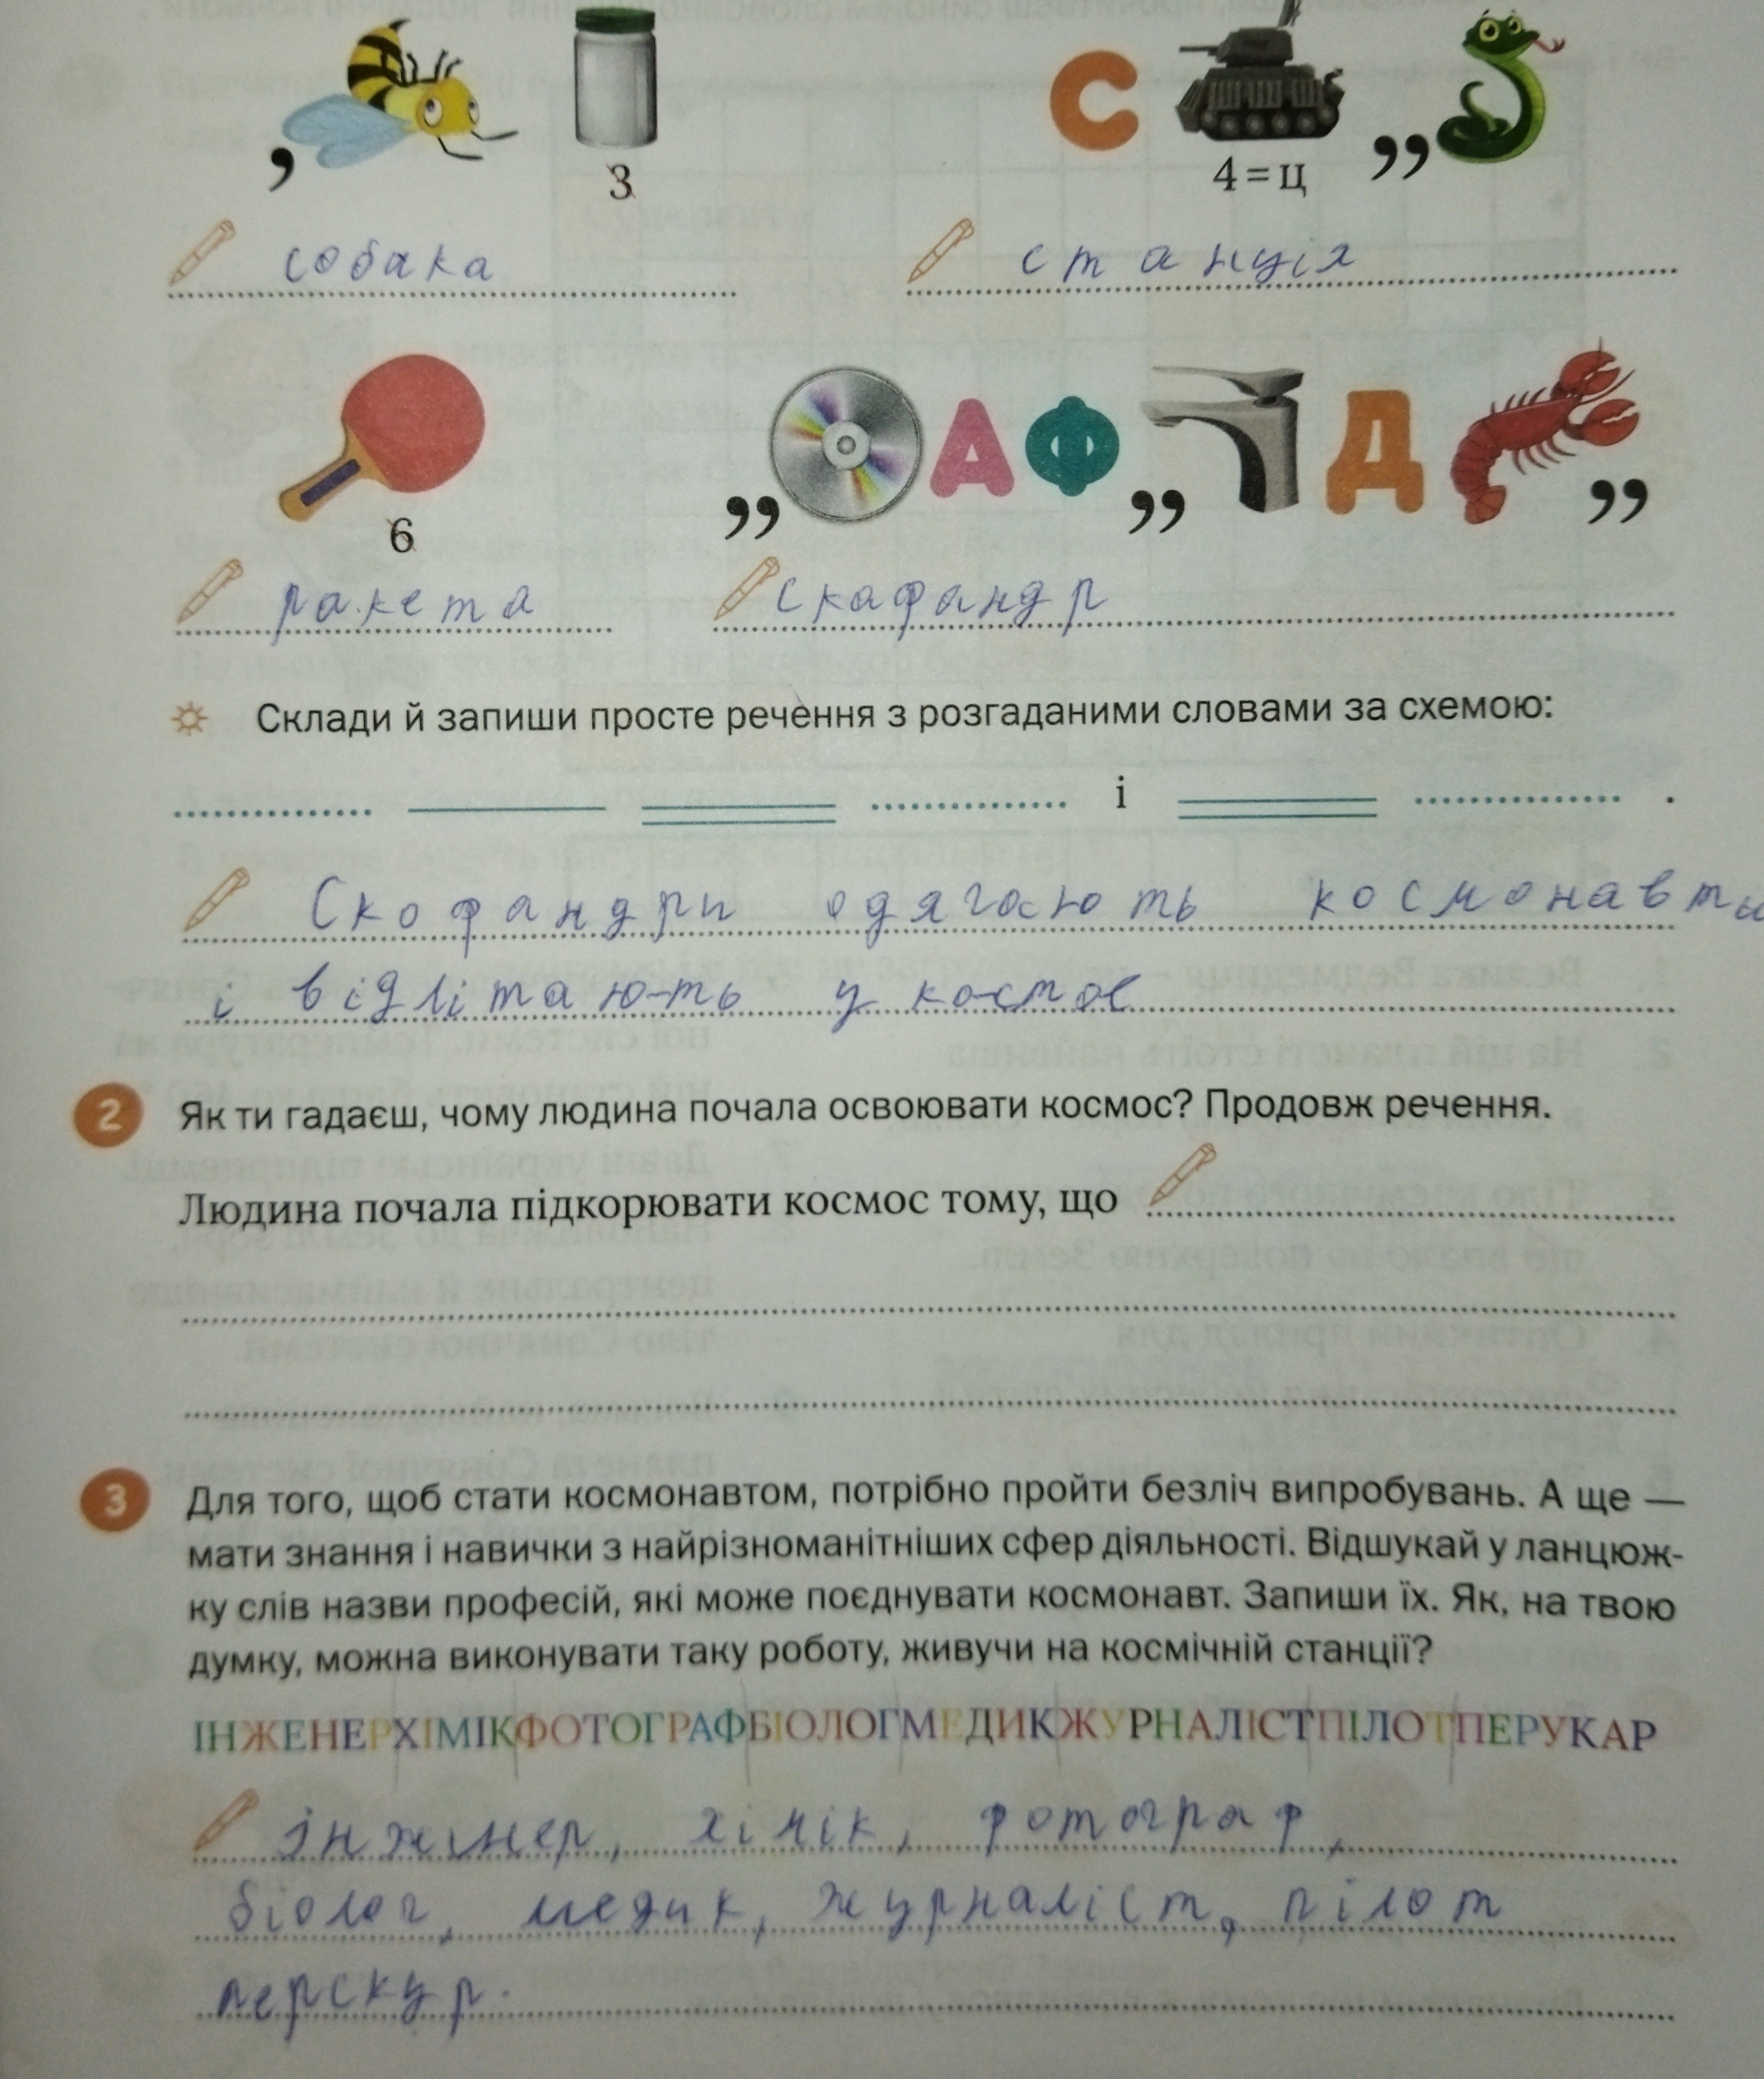 С
3
4=ц
собака
станція
А Ф Д
6
ракета
скафандр
Склади й запиши просте речення з розгаданими словами за схемою:
і .
Скофандри одягають космонавти
і відлітають у космос
2 Як ти гадаєш, чому людина почала освоювати космос? Продовж речення.
Людина почала підкорювати космос тому, що
3 Для того, щоб стати космонавтом, потрібно пройти безліч випробувань. А ще —
мати знання і навички з найрізноманітніших сфер діяльності. Відшукай у ланцюж-
ку слів назви професій, які може поєднувати космонавт. Запиши їх. Як, на твою
думку, можна виконувати таку роботу, живучи на космічній станції?
ІНЖЕНЕРХІМІКФОТОГРАФБІОЛОГМЕДИКЖУРНАЛІСТПІЛОТПЕРУКАР
інжинер, хімік, фотограф,
біолог, медик, журналіст, пілот